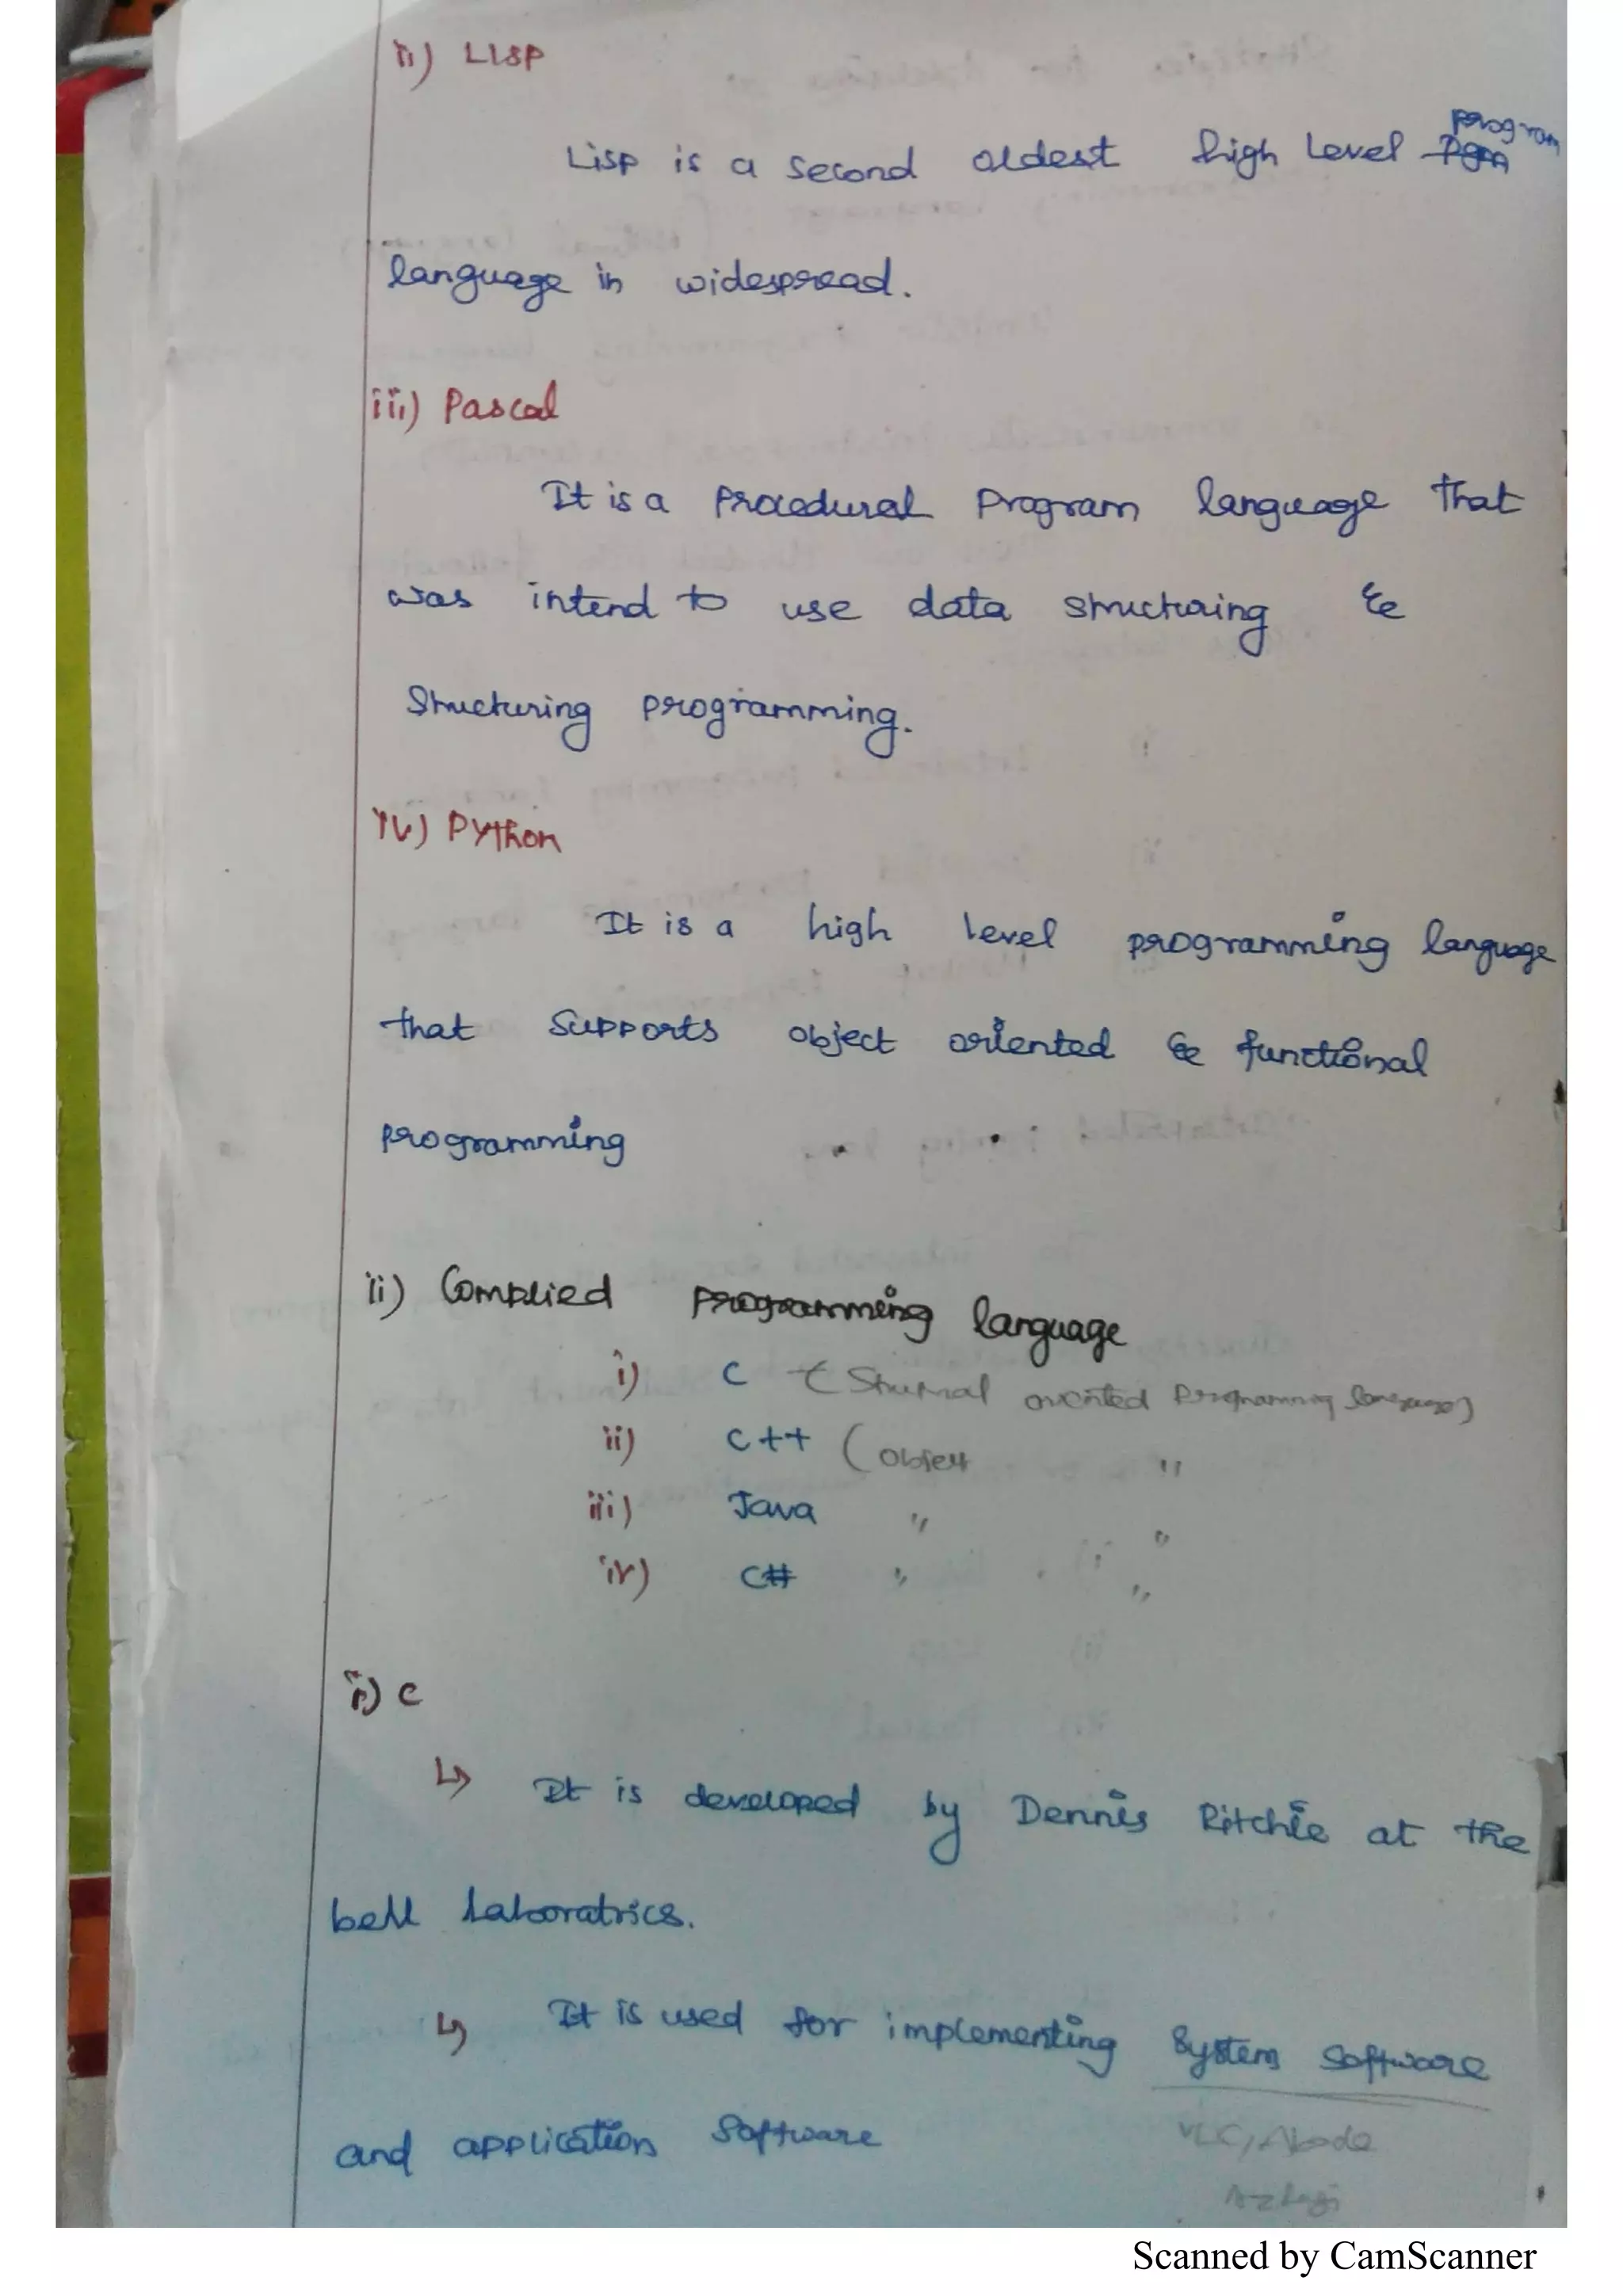 ii) LISP
Lisp is a second oldest high Level program
language in widespread.
iii) Pascal
It is a Procedural Program language that
was intend to use data structuring &
Structuring programming.
iv) Python
It is a high level programming language
that supports object oriented & functional
programming
ii) Complied programming language
i) C ( oriented Programming language)
ii) C++ (Object "
iii) Java " "
iv) C# " "
i) C
↳ It is developed by Dennis Ritchie at the
bell Laboratrics.
↳ It is used for implementing System Software
and application Software
VLC, Abode
Scanned by CamScanner